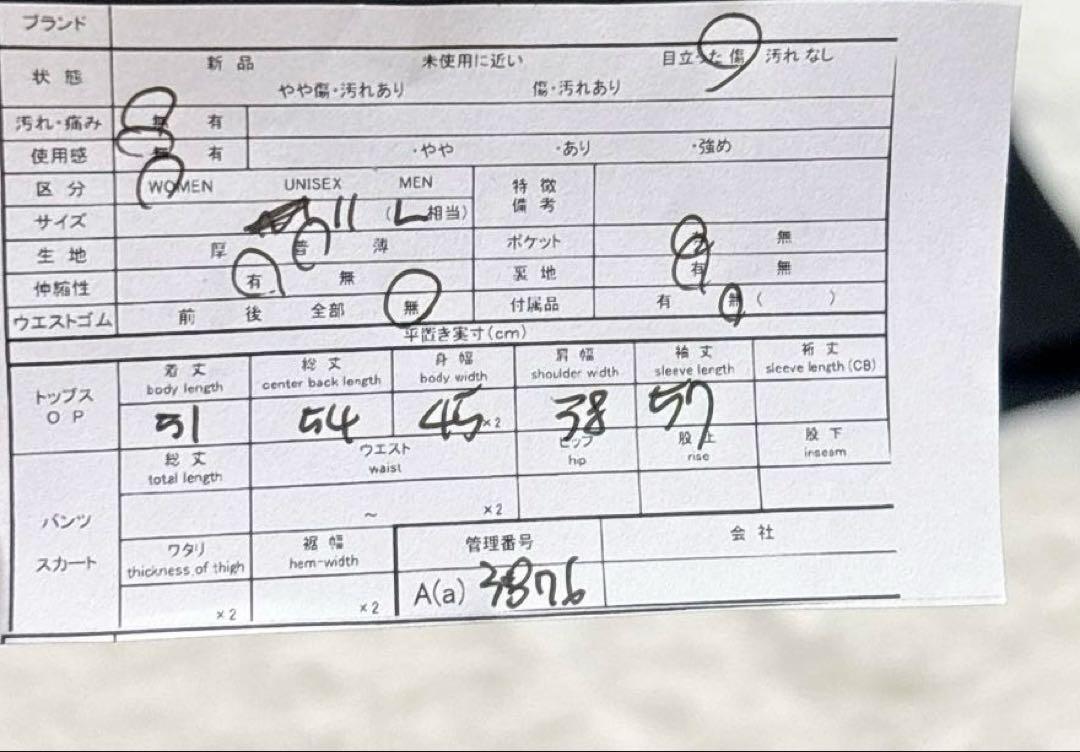 ブランド
状態 新品 未使用に近い 目立った傷 汚れなし
やや傷・汚れあり 傷・汚れあり
汚れ・痛み 無 有
使用感 無 有 ・やや ・あり ・強め
区分 WOMEN UNISEX MEN 特徴
備考
サイズ 11 (L相当)
生地 厚 普 薄 ポケット 有 無
伸縮性 有 無 裏地 有 無
ウエストゴム 前 後 全部 無 付属品 有 無 ( )
平置き実寸(cm)
トップス
OP
着丈 総丈 身幅 肩幅 袖丈 裄丈
body length center back length body width shoulder width sleeve length sleeve length (CB)
51 54 45×2 38 57
総丈 ウエスト ヒップ 股上 股下
total length waist hip rise inseam
パンツ
スカート
~ ×2
ワタリ 裾幅 管理番号 会社
thickness of thigh hem-width
×2 ×2 A(a) 3876